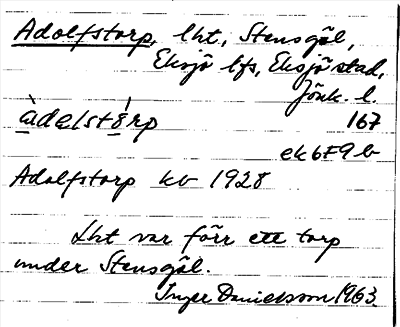 Adolfstorp, lht, Stensgöl,
Eksjö lfs, Eksjö stad,
Jönk. l.
àdelstórp 167
ek679b
Adolfstorp kb 1928
Lht var förr ett torp
under Stensgöl.
Inger Danielsson 1963